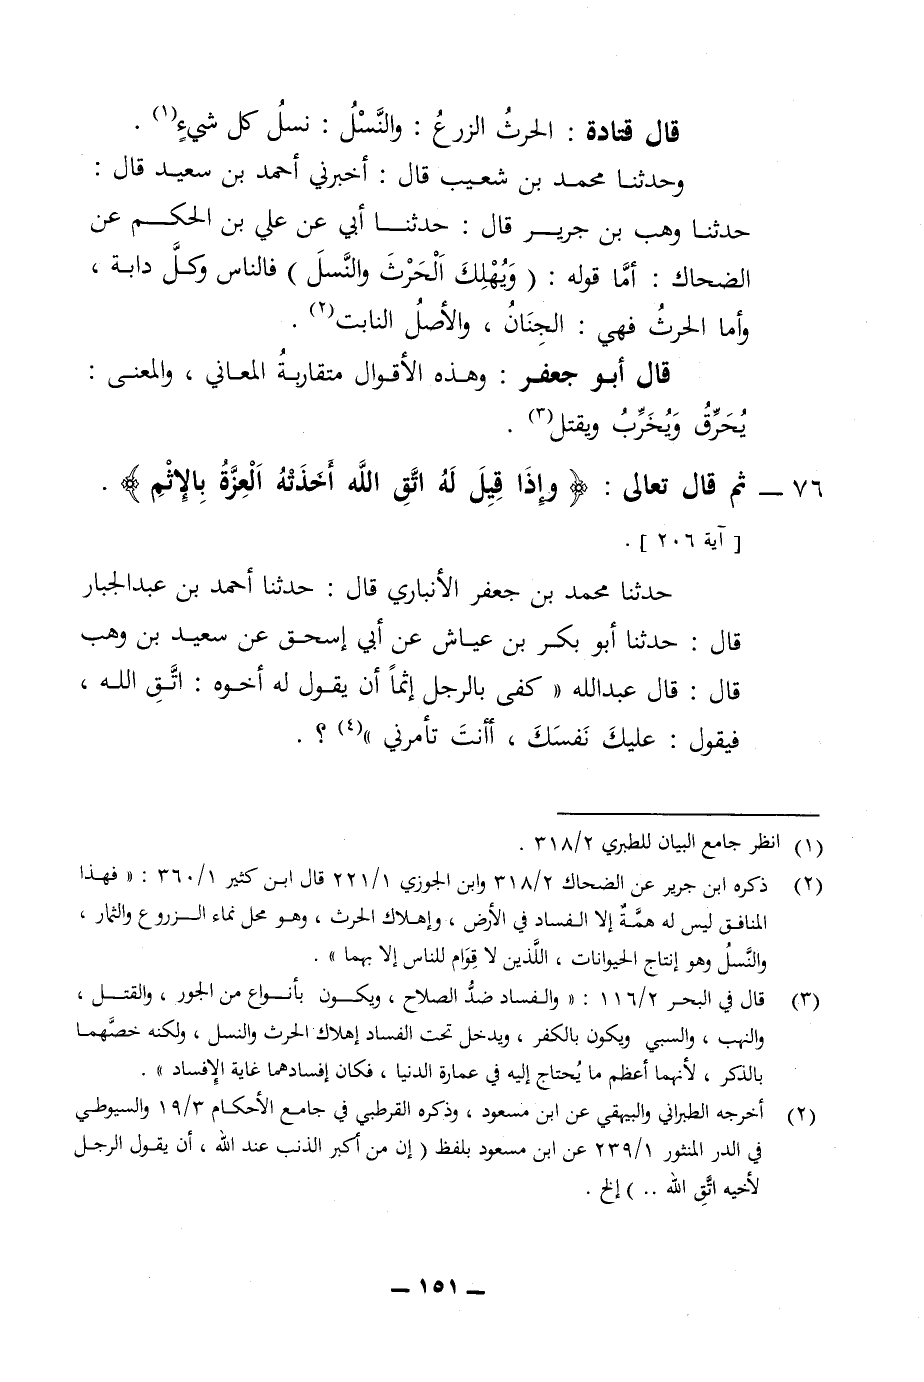 قال قتادة : الحرثُ الزرعُ : والنَّسْلُ : نسلُ كل شيءٍ(١) .
وحدثنا محمد بن شعيب قال : أخبرني أحمد بن سعيد قال :
حدثنا وهب بن جرير قال : حدثنا أبي عن علي بن الحكم عن
الضحاك : أمَّا قوله : ( وَيُهْلِكَ اَلْحَرْثَ والنَّسلَ ) فالناس وكلَّ دابة ،
وأما الحرثُ فهي : الجِنَانُ ، والأصلُ النابت(٢) .
قال أبو جعفر : وهذه الأقوال متقاربةُ المعاني ، والمعنى :
يُحَرِّقُ وَيُخَرِّبُ ويقتل(٣) .
٧٦ ــ ثم قال تعالى : ﴿ وإِذَا قِيِلَ لَهُ اتَّقِ اللَّه أَخَذَتْهُ اَلْعِزَّةُ بِالإِثْمِ ﴾ .
[ آية ٢٠٦ ] .
حدثنا محمد بن جعفر الأنباري قال : حدثنا أحمد بن عبدالجبار
قال : حدثنا أبو بكر بن عياش عن أبي إسحق عن سعيد بن وهب
قال : قال عبدالله « كفى بالرجل إثماً أن يقول له أخوه : اتَّقِ الله ،
فيقول : عليكَ نَفسَكَ ، أأنتَ تأمرني »(٤) ؟ .
(١) انظر جامع البيان للطبري ٣١٨/٢ .
(٢) ذكره ابن جرير عن الضحاك ٣١٨/٢ وابن الجوزي ٢٢١/١ قال ابن كثير ٣٦٠/١ : « فهذا
المنافق ليس له همَّةٌ إلا الفساد في الأرض ، وإهلاك الحرث ، وهو محل نماء الزروع والثمار ،
والنَّسلُ وهو إنتاج الحيوانات ، اللَّذين لا قِوَام للناس إلا بهما » .
(٣) قال في البحر ١١٦/٢ : « والفساد ضدُّ الصلاح ، ويكون بأنواع من الجور ، والقتل ،
والنهب ، والسبي ويكون بالكفر ، ويدخل تحت الفساد إهلاك الحرث والنسل ، ولكنه خصَّهما
بالذكر ، لأنهما أعظم ما يُحتاج إليه في عمارة الدنيا ، فكان إفسادهما غاية الإِفساد » .
(٢) أخرجه الطبراني والبيهقي عن ابن مسعود ، وذكره القرطبي في جامع الأحكام ١٩/٣ والسيوطي
في الدر المنثور ٢٣٩/١ عن ابن مسعود بلفظ ( إن من أكبر الذنب عند الله ، أن يقول الرجل
لأخيه اتَّقِ الله .. ) إلخ .
ــ ١٥١ ــ